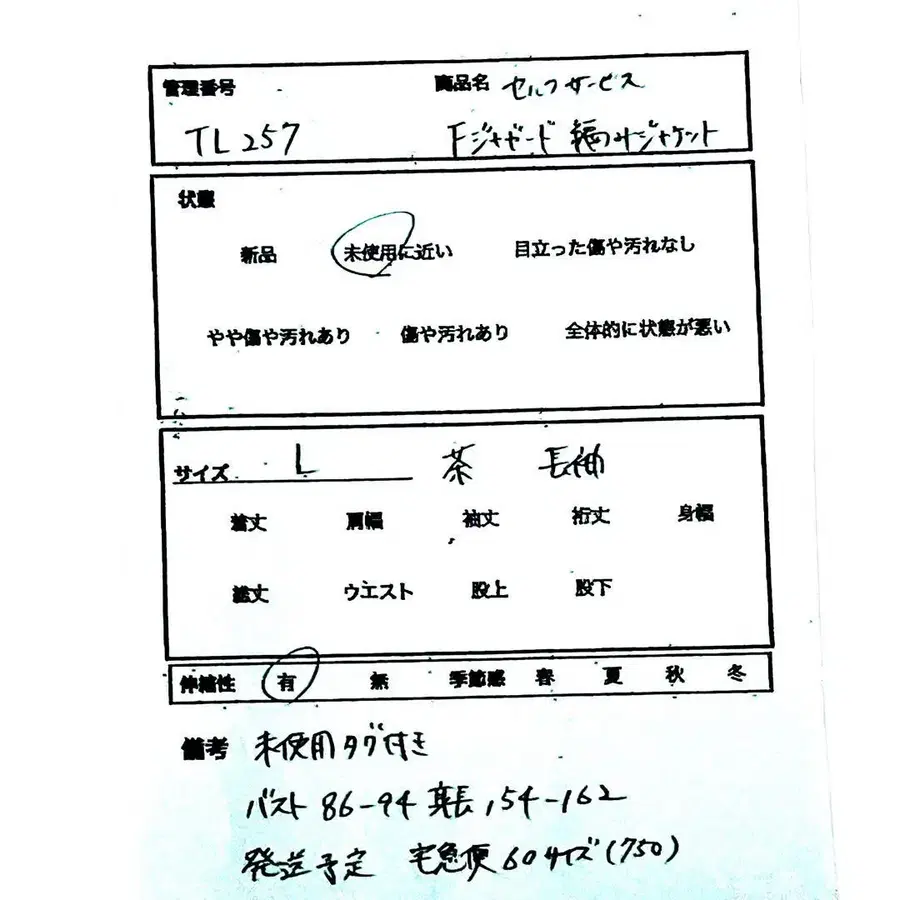 管理番号 商品名 セルフサービス
TL257 Fジャガード 編みジャケット
状態
新品 未使用に近い 目立った傷や汚れなし
やや傷や汚れあり 傷や汚れあり 全体的に状態が悪い
サイズ L 茶 長袖
着丈 肩幅 袖丈 裄丈 身幅
総丈 ウエスト 股上 股下
伸縮性 有 無 季節感 春 夏 秋 冬
備考 未使用タグ付き
バスト 86-94 身長 154-162
発送予定 宅急便60サイズ(750)